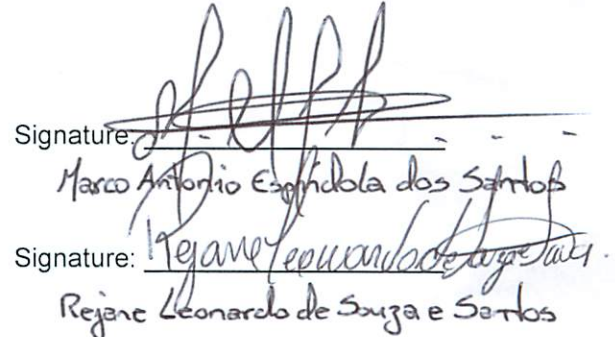 Signature:
Marco Antonio Espíndola dos Santos
Signature: Rejane Leonardo de Souza e Santos
Rejane Leonardo de Souza e Santos